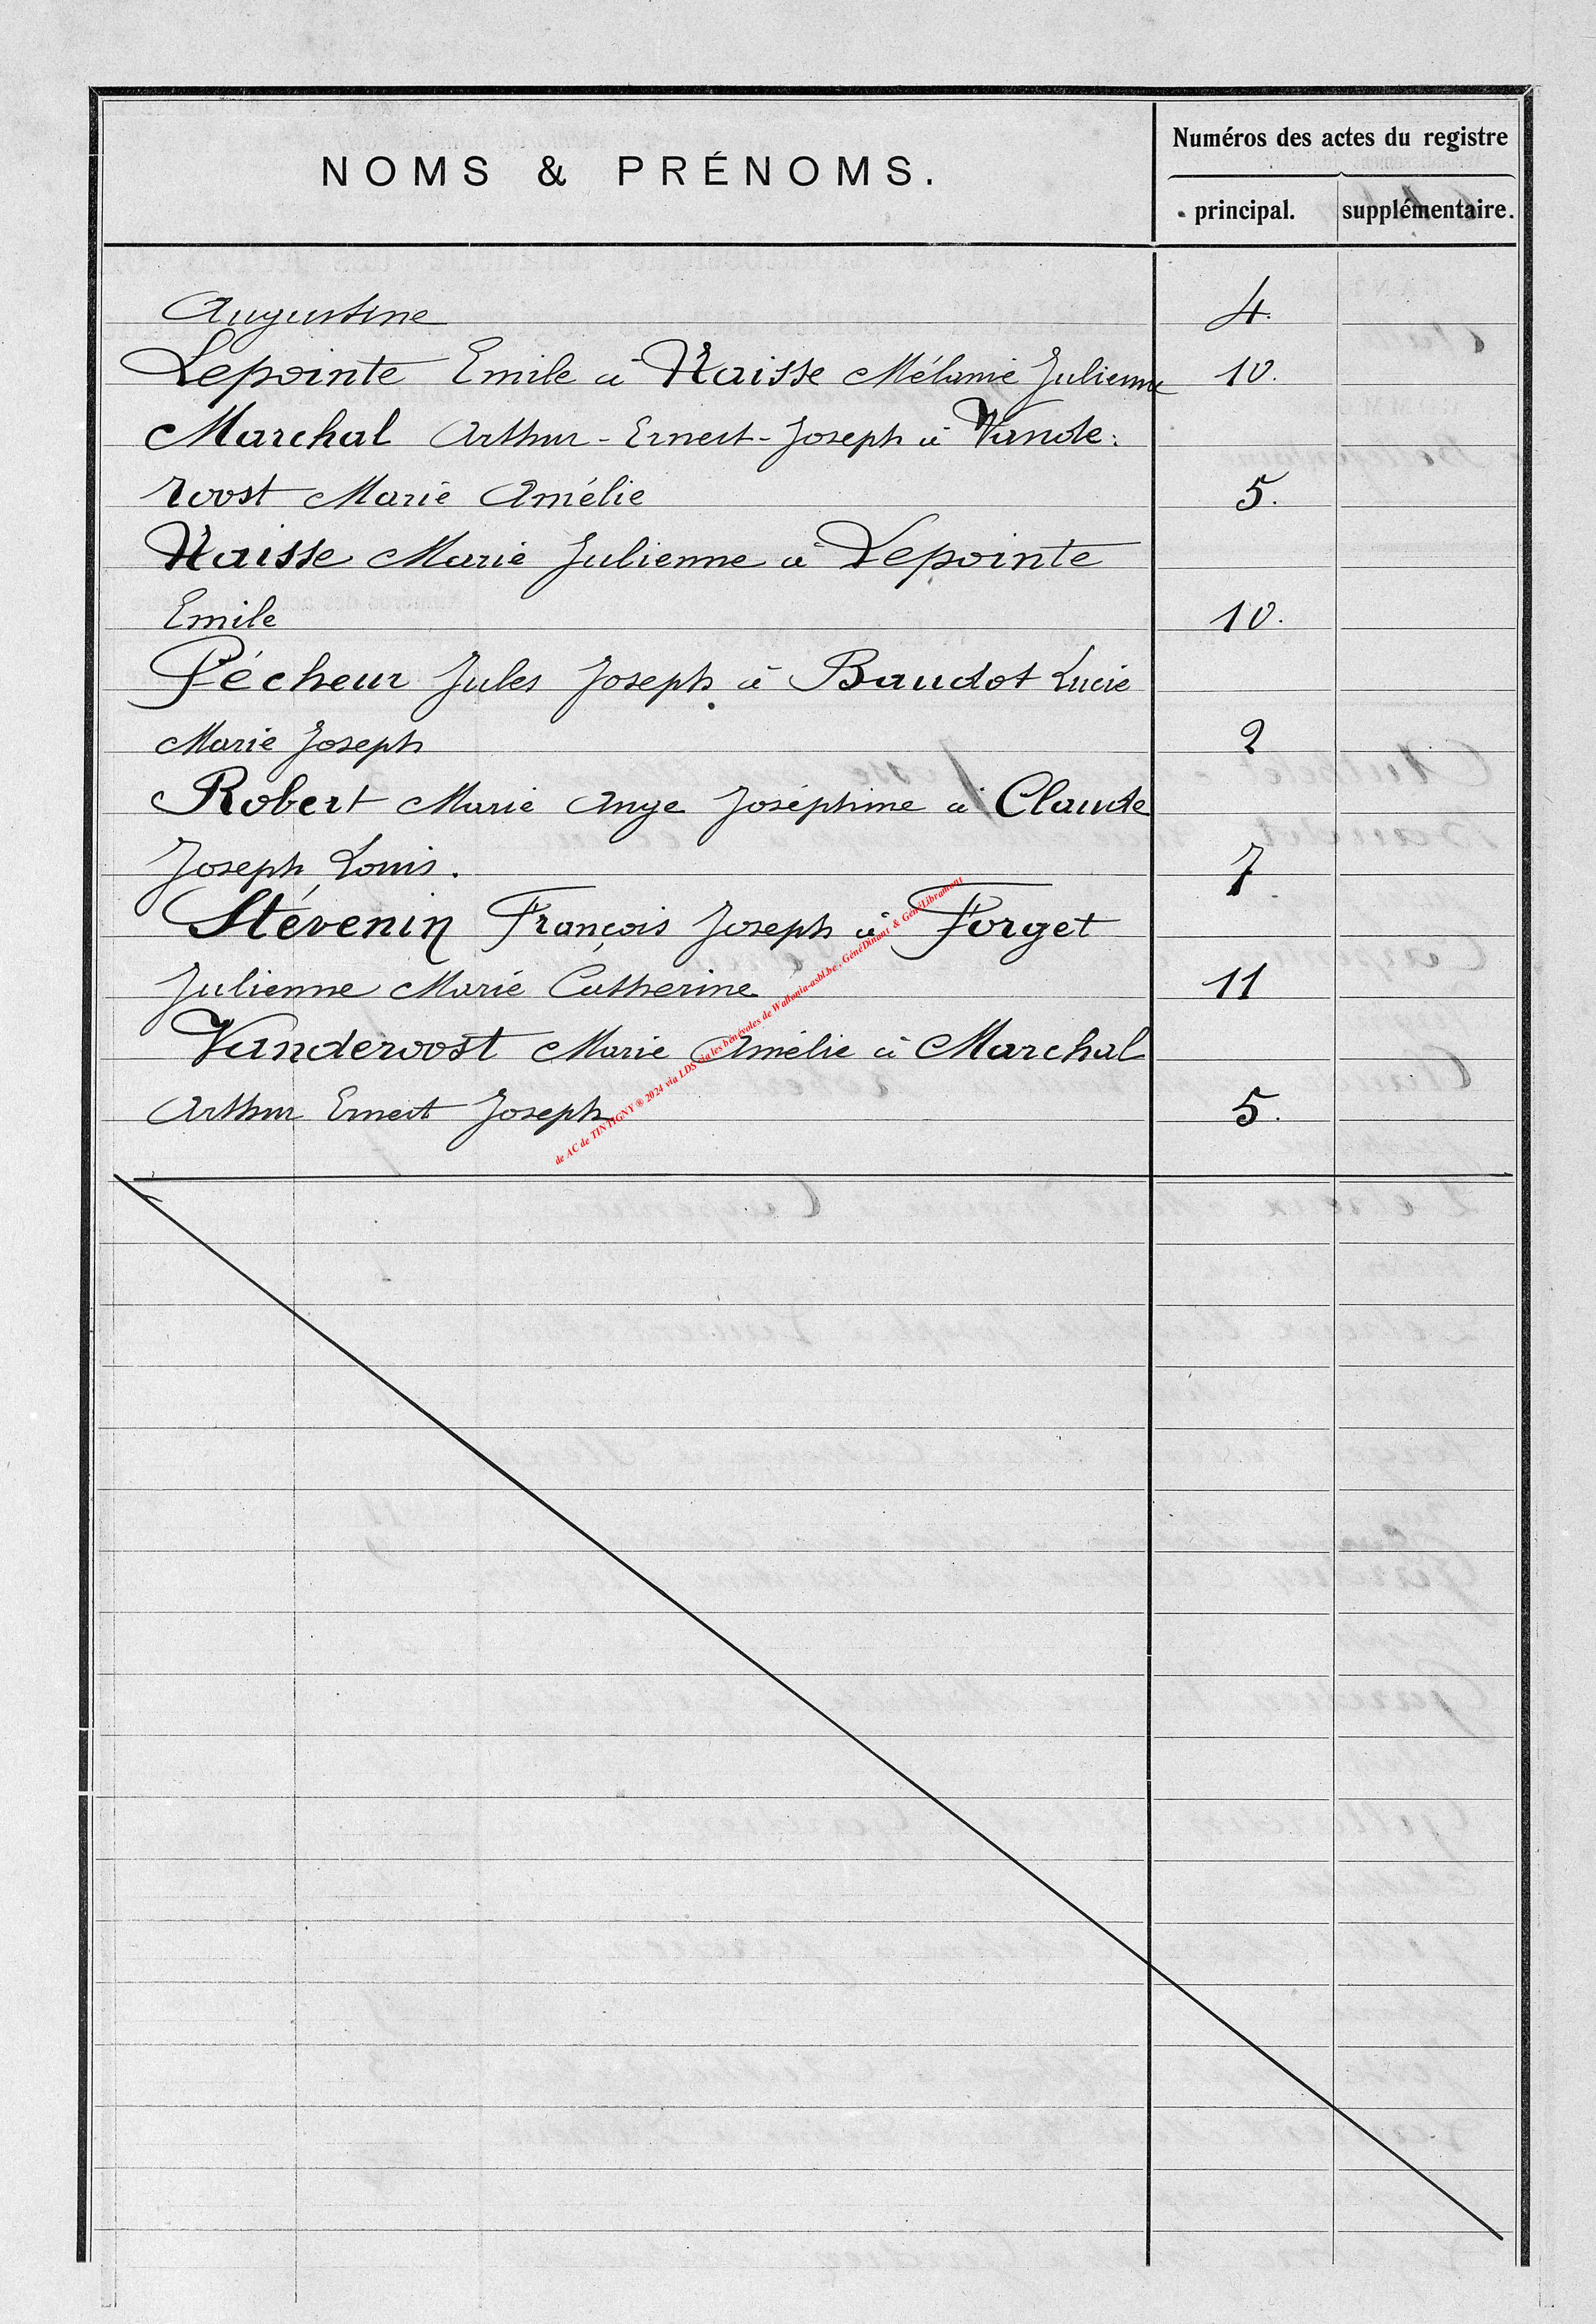 NOMS & PRÉNOMS.
Numéros des actes du registre
principal.
supplémentaire.
Augustine 4.
Lepointe Emile à Naisse Mélanie Julienne 10.
Marchal Arthur-Ernest-Joseph à Vande:
roost Marie Amélie 5.
Naisse Marie Julienne à Lepointe
Emile 10.
Pécheur Jules Joseph à Baudot Lucie
Marie Joseph 2
Robert Marie Ange Joséphine à Claude
Joseph Louis. 7
Stévenin François Joseph à Forget
Julienne Marie Catherine 11
Vanderoost Marie Amélie à Marchal
Arthur Ernest Joseph 5.
de AC de TINTIGNY ® 2024 via LDS via les bénévoles de Wallonia-asbl.be, GénéDinant & GénéLibramont